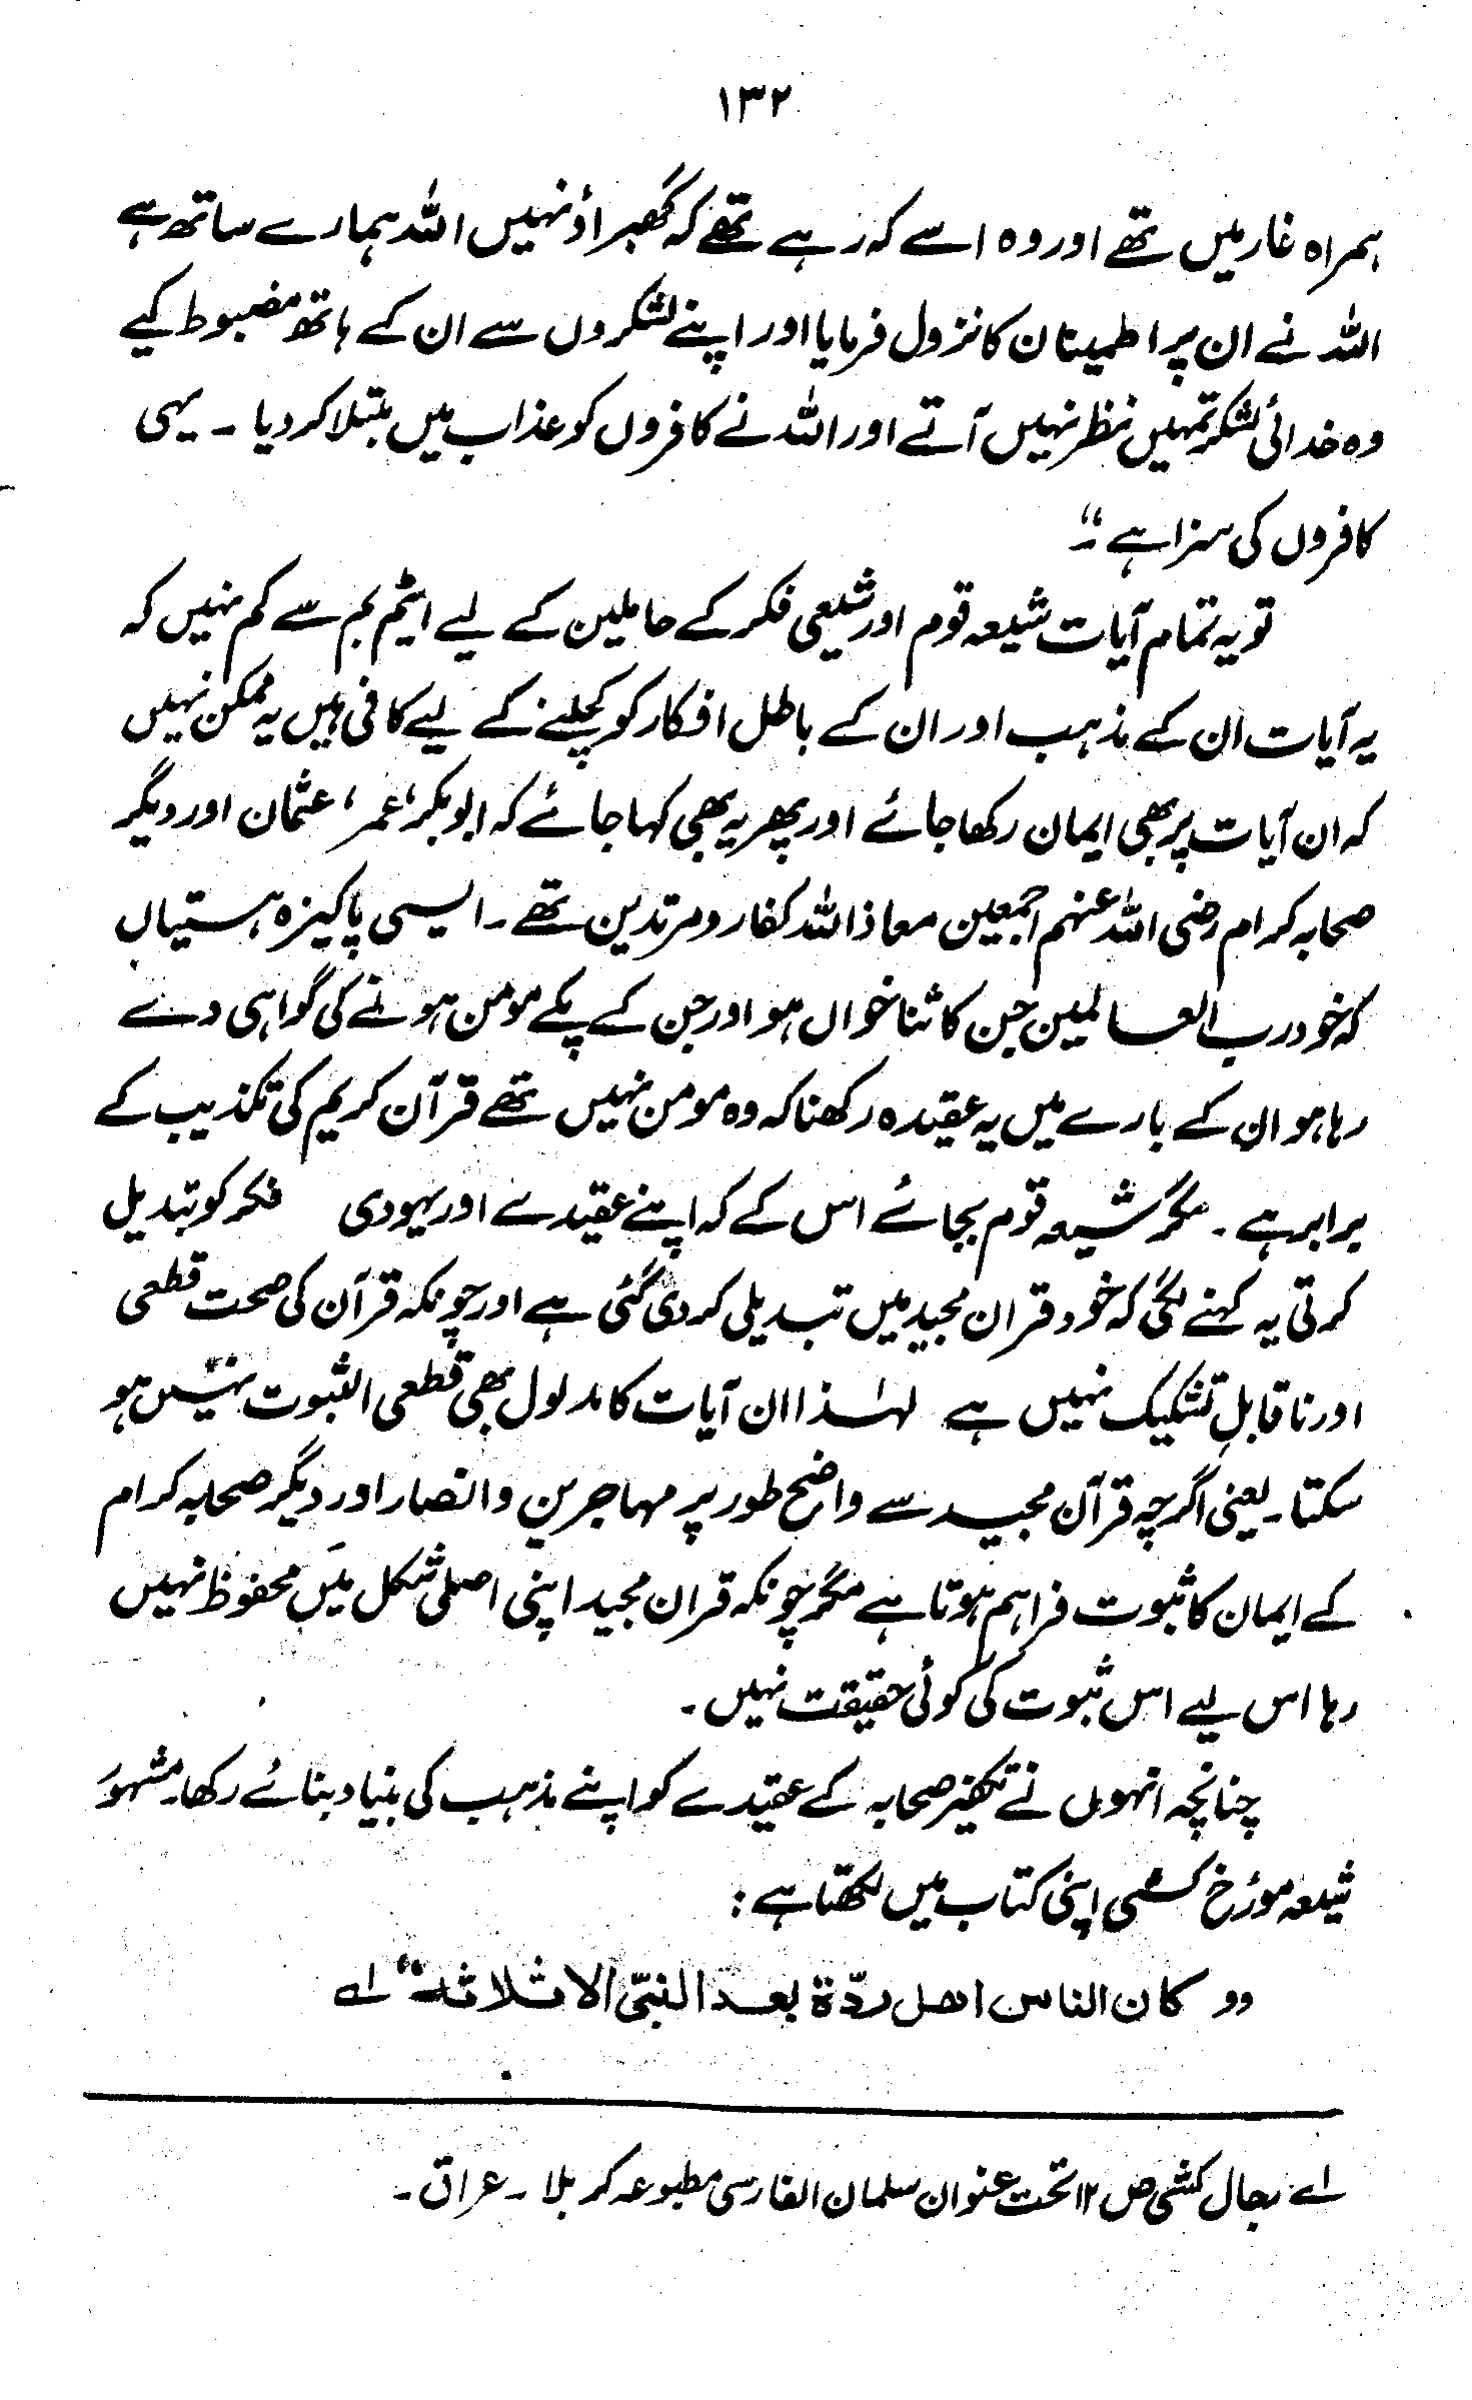 ۱۳۲
ہمراہ غار میں تھے اور وہ اسے کہ رہے تھے کہ گھبراؤ نہیں اللہ ہمارے ساتھ ہے
اللہ نے ان پر اطمینان کا نزول فرمایا اور اپنے لشکروں سے ان کے ہاتھ مضبوط کیے
وہ خدائی لشکر تمہیں نظر نہیں آتے اور اللہ نے کافروں کو عذاب میں مبتلا کر دیا ۔ یہی
کافروں کی سزا ہے ۔“
تو یہ تمام آیات شیعہ قوم اور شیعی فکر کے حاملین کے لیے ایٹم بم سے کم نہیں کہ
یہ آیات ان کے مذہب اور ان کے باطل افکار کو کچلنے کے لیے کافی ہیں یہ ممکن نہیں
کہ ان آیات پر بھی ایمان رکھا جائے اور پھر یہ بھی کہا جائے کہ ابوبکر، عمر، عثمان اور دیگر
صحابہ کرام رضی اللہ عنہم اجمعین معاذ اللہ کفار و مرتدین تھے ۔ ایسی پاکیزہ ہستیاں
کہ خود رب العالمین جن کا ثنا خواں ہو اور جن کے پکے مومن ہونے کی گواہی دے
رہا ہو ان کے بارے میں یہ عقیدہ رکھنا کہ وہ مومن نہیں تھے قرآن کریم کی تکذیب کے
برابر ہے ۔ مگر شیعہ قوم بجائے اس کے کہ اپنے عقیدے اور یہودی فکر کو تبدیل
کرتی یہ کہنے لگی کہ خود قران مجید میں تبدیلی کر دی گئی ہے اور چونکہ قرآن کی صحت قطعی
اور ناقابلِ تشکیک نہیں ہے لہٰذا ان آیات کا مدلول بھی قطعی الثبوت نہیں ہو
سکتا ۔ یعنی اگرچہ قرآن مجید سے واضح طور پر مہاجرین و انصار اور دیگر صحابہ کرام
کے ایمان کا ثبوت فراہم ہوتا ہے مگر چونکہ قران مجید اپنی اصلی شکل میں محفوظ نہیں
رہا اس لیے اس ثبوت کی کوئی حقیقت نہیں ۔
چنانچہ انہوں نے تکفیر صحابہ کے عقیدے کو اپنے مذہب کی بنیاد بنائے رکھا۔ مشہور
شیعہ مورٔخ کشی اپنی کتاب میں لکھتا ہے :
” کان الناس اھل ردّة بعد النبیّ الا ثلاثة“ لے
لے رجال کشی ص ۱۲ تحت عنوان سلمان الفارسی مطبوعہ کربلا ۔ عراق ۔